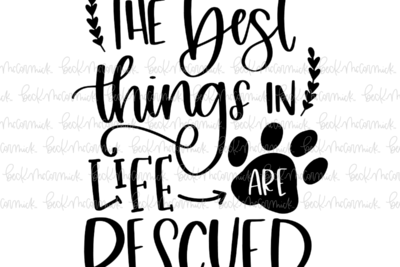 THE best
things IN
LIFE ARE
RESCUED